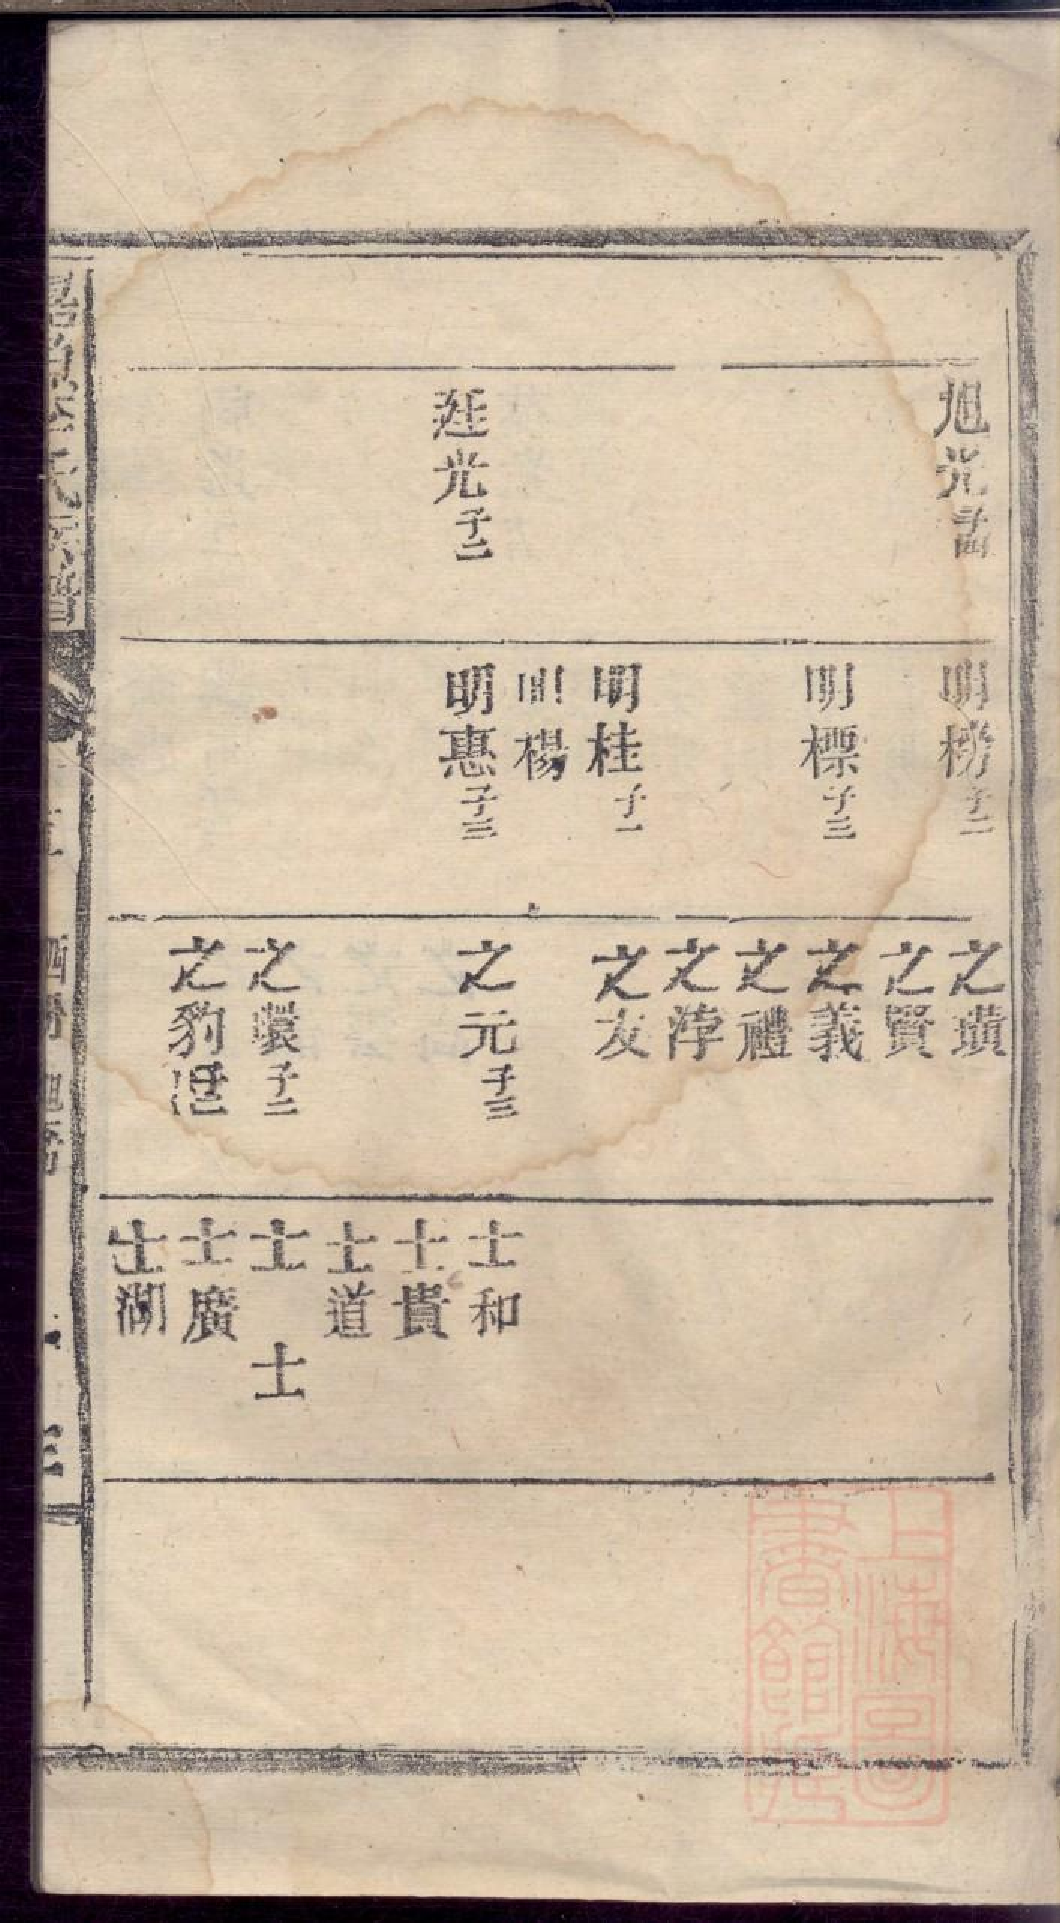 旭光子四
廷光子二
明榜子二
明標子三
明桂子一
明楊
明惠子三
之璜
之賢
之義
之禮
之淳
之友
之元子三
之環子二
之豹子二
士和
士貴
士道
士
士
士廣
士湖
氏家譜
上海圖
書館藏